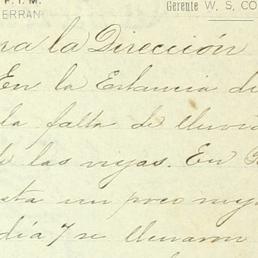 F. T. M.
ERRAN
Gerente W. S. CO
ra la Dirección
En la Estancia de
la falta de lluvia
las viejas. En
sta un poco mej
día 7 se llenaron